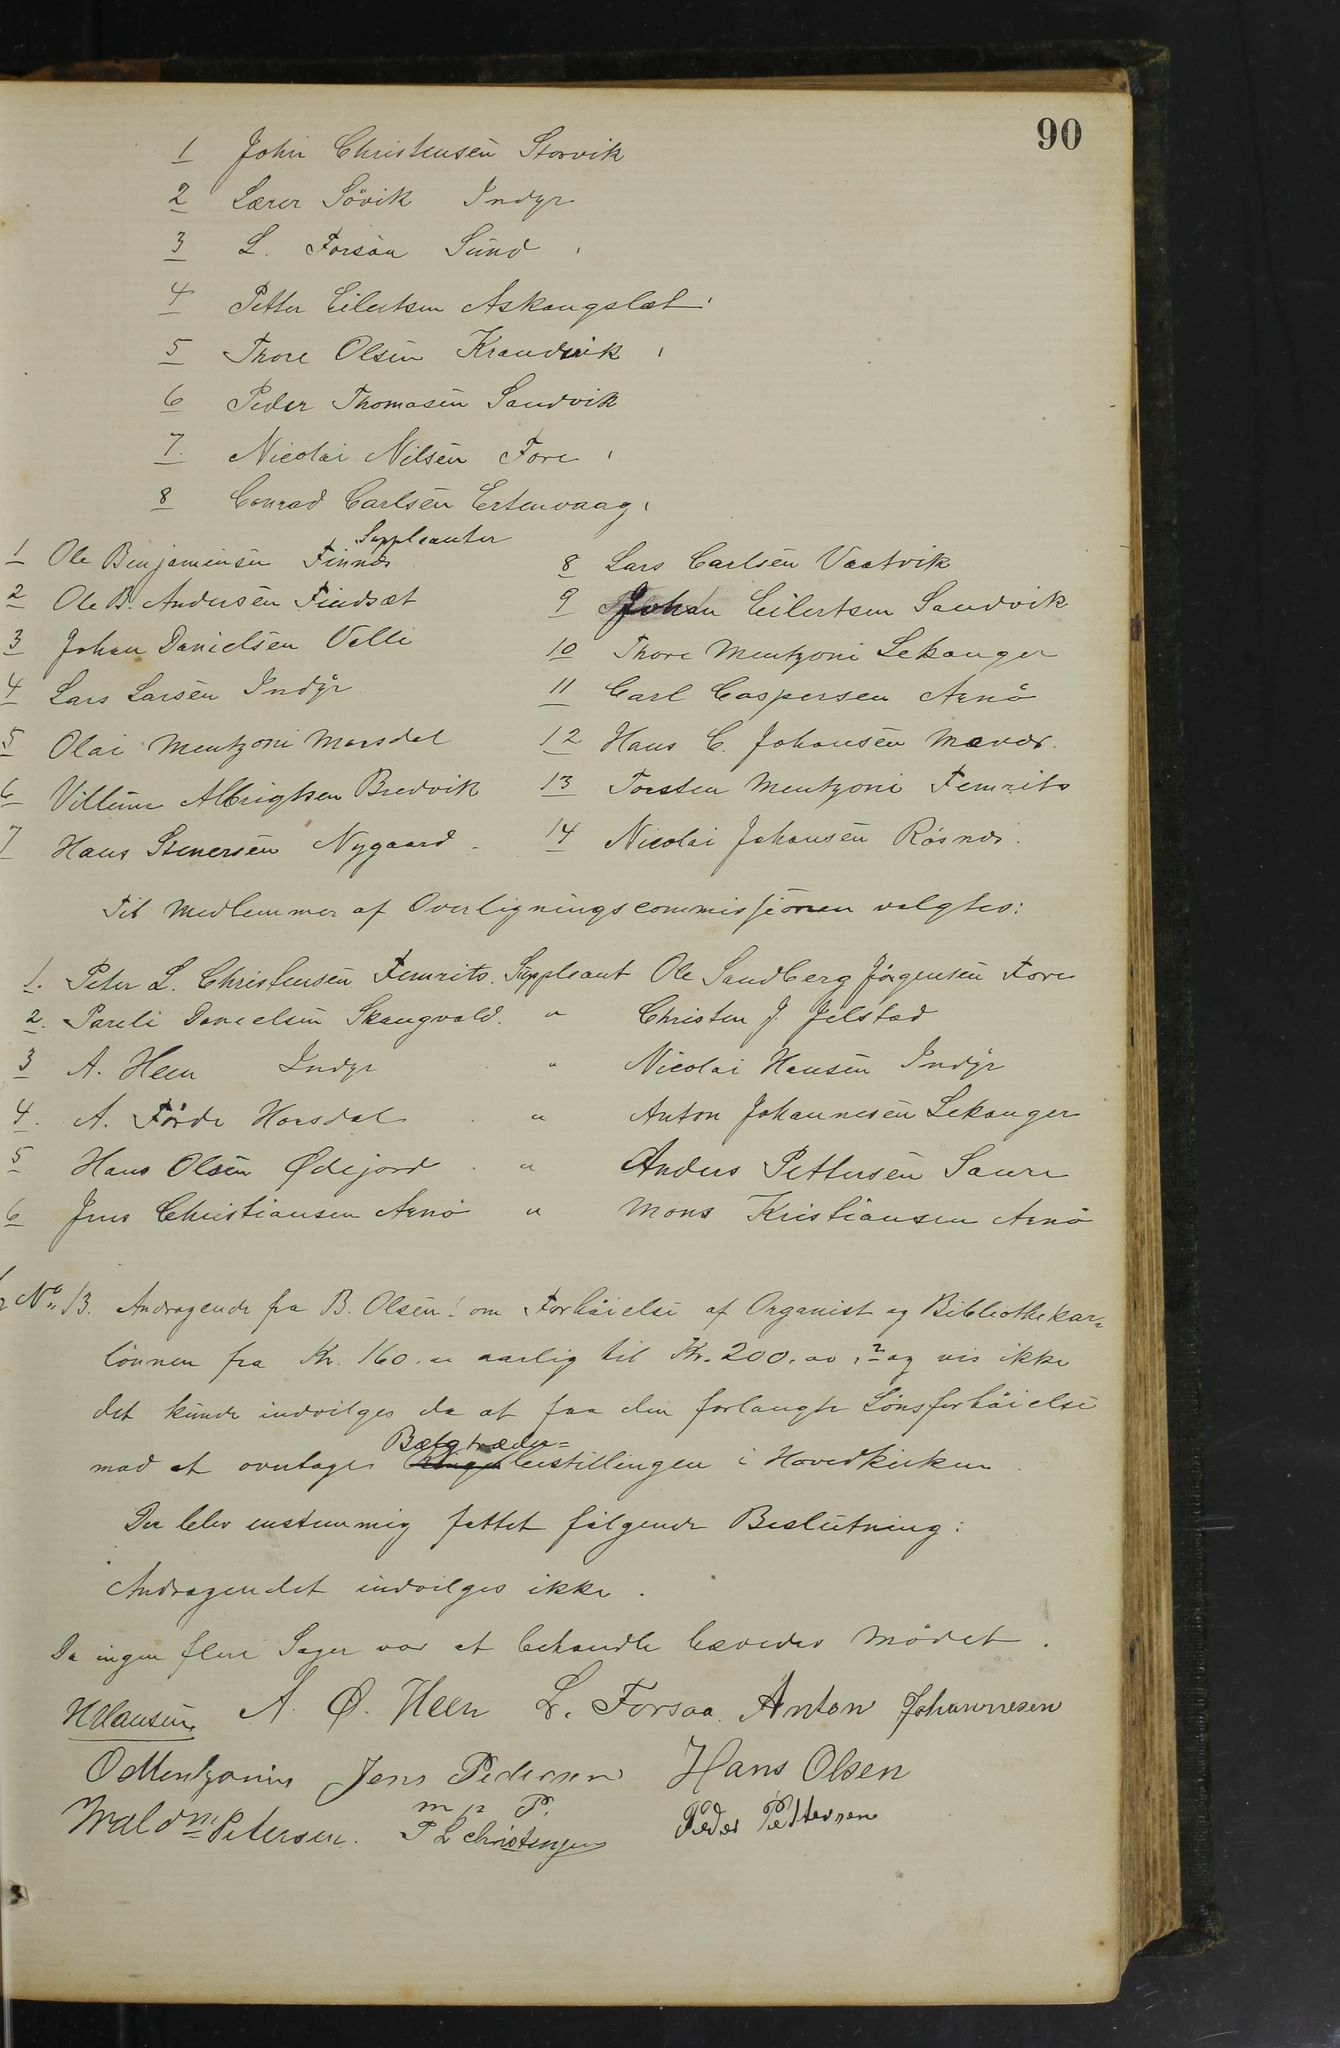 90
1 John Christensen Storvik
2 Lærer Sövik Indyr
3 L. Forsaa Sund
4 Petter Eilertsen Askaugslæt
5 Thore Olsen Krandvik
6 Peder Thomasen Sandvik
7. Nicolai Nilsen Fore
8 Conrad Carlsen Ertenvaag
Suppleanter
1 Ole Benjaminsen Finnæs
2 Ole B. Andersen Findsæt
3 Johan Danielsen Velli
4 Lars Larsen Indyr
5 Olai Mentzoni Marsdal
6 Villum Albrigtsen Bredvik
7 Hans Stenersen Nygaard
8 Lars Carlsen Vaatvik
9 Johan Eilertsen Sandvik
10 Thore Mentzoni Sekanger
11 Carl Caspersen Arnö
12 Hans C. Johansen Mevær.
13 Torsten Mentzoni Femris
14 Nicolai Johansen Rösnæs.
Til Medlemmer af Overligningscommissionen valgtes:
1. Peter L. Christensen Femris. Suppleant Ole Sandberg Jörgensen Fore
2. Pareli Danielsen Skaugvold. " Christen J. Jelstad
3 A. Heen Indyr " Nicolai Hansen Indyr
4. A. Förde Horsdal " Anton Johannesen Sekanger
5 Hans Olsen Ødejord " Anders Pettersen Saura
6 Jens Christiansen Arnö " Mons Kristiansen Arnö
No 13. Andragende fra B. Olsen! om Forhöielse af Organist og Bibliothekar=
lönnen fra Kr. 160. aarlig til Kr. 200.00, og vis ikke
det kunde indvilges da at faa den forlangte Lönsforhöielse
mod at overtage Bælgtræder= stillingen i Hovedkirken
Der blev enstemmig fattet fölgende Beslutning:
Andragendet indvilges ikke.
Da ingen flere Sager var at behandle hævedes Mödet.
H Hansen A. Ø. Heen L. Forsaa. Anton Johannesen
O Mentzoni Jens Pedersen Hans Olsen
m p P.
Waldm Petersen. P L Christensen Peder Pettersen